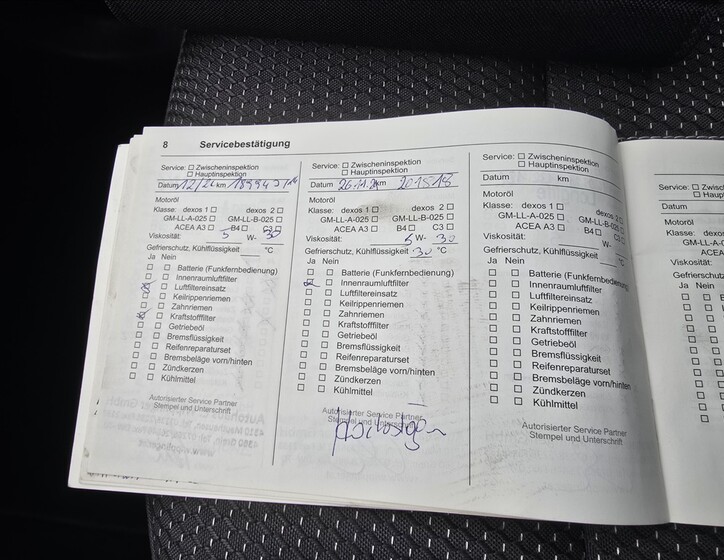 8 Servicebestätigung
Service: ☐ Zwischeninspektion
☐ Hauptinspektion
Datum 12/2 km
Motoröl
Klasse: dexos 1 ☐ dexos 2 ☐
GM-LL-A-025 ☐ GM-LL-B-025 ☐
ACEA A3 ☐ B4 ☐ C3 ☐
Viskosität: 5 W- 30
Gefrierschutz, Kühlflüssigkeit °C
Ja Nein
☐ ☐ Batterie (Funkfernbedienung)
☐ ☐ Innenraumluftfilter
☐ Luftfiltereinsatz
☐ ☐ Keilrippenriemen
☐ ☐ Zahnriemen
☐ Kraftstofffilter
☐ ☐ Getriebeöl
☐ ☐ Bremsflüssigkeit
☐ ☐ Reifenreparaturset
☐ ☐ Bremsbeläge vorn/hinten
☐ ☐ Zündkerzen
☐ ☐ Kühlmittel
Autorisierter Service Partner
Stempel und Unterschrift
Service: ☐ Zwischeninspektion
☐ Hauptinspektion
Datum 26.11. km 201518
Motoröl
Klasse: dexos 1 ☐ dexos 2 ☐
GM-LL-A-025 ☐ GM-LL-B-025 ☐
ACEA A3 ☐ B4 ☐ C3 ☐
Viskosität: 5 W- 30
Gefrierschutz, Kühlflüssigkeit -30 °C
Ja Nein
☐ ☐ Batterie (Funkfernbedienung)
☐ Innenraumluftfilter
☐ ☐ Luftfiltereinsatz
☐ ☐ Keilrippenriemen
☐ ☐ Zahnriemen
☐ ☐ Kraftstofffilter
☐ ☐ Getriebeöl
☐ ☐ Bremsflüssigkeit
☐ ☐ Reifenreparaturset
☐ ☐ Bremsbeläge vorn/hinten
☐ ☐ Zündkerzen
☐ ☐ Kühlmittel
Autorisierter Service Partner
Stempel und Unterschrift
Service: ☐ Zwischeninspektion
☐ Hauptinspektion
Datum km
Motoröl
Klasse: dexos 1 ☐ dexos 2 ☐
GM-LL-A-025 ☐ GM-LL-B-025 ☐
ACEA A3 ☐ B4 ☐ C3 ☐
Viskosität: W-
Gefrierschutz, Kühlflüssigkeit °C
Ja Nein
☐ ☐ Batterie (Funkfernbedienung)
☐ ☐ Innenraumluftfilter
☐ ☐ Luftfiltereinsatz
☐ ☐ Keilrippenriemen
☐ ☐ Zahnriemen
☐ ☐ Kraftstofffilter
☐ ☐ Getriebeöl
☐ ☐ Bremsflüssigkeit
☐ ☐ Reifenreparaturset
☐ ☐ Bremsbeläge vorn/hinten
☐ ☐ Zündkerzen
☐ ☐ Kühlmittel
Autorisierter Service Partner
Stempel und Unterschrift
Service: ☐ Z
☐ H
Datum
Motoröl
Klasse: dexos
GM-LL-A-0
ACEA
Viskosität:
Gefrierschutz
Ja Nein